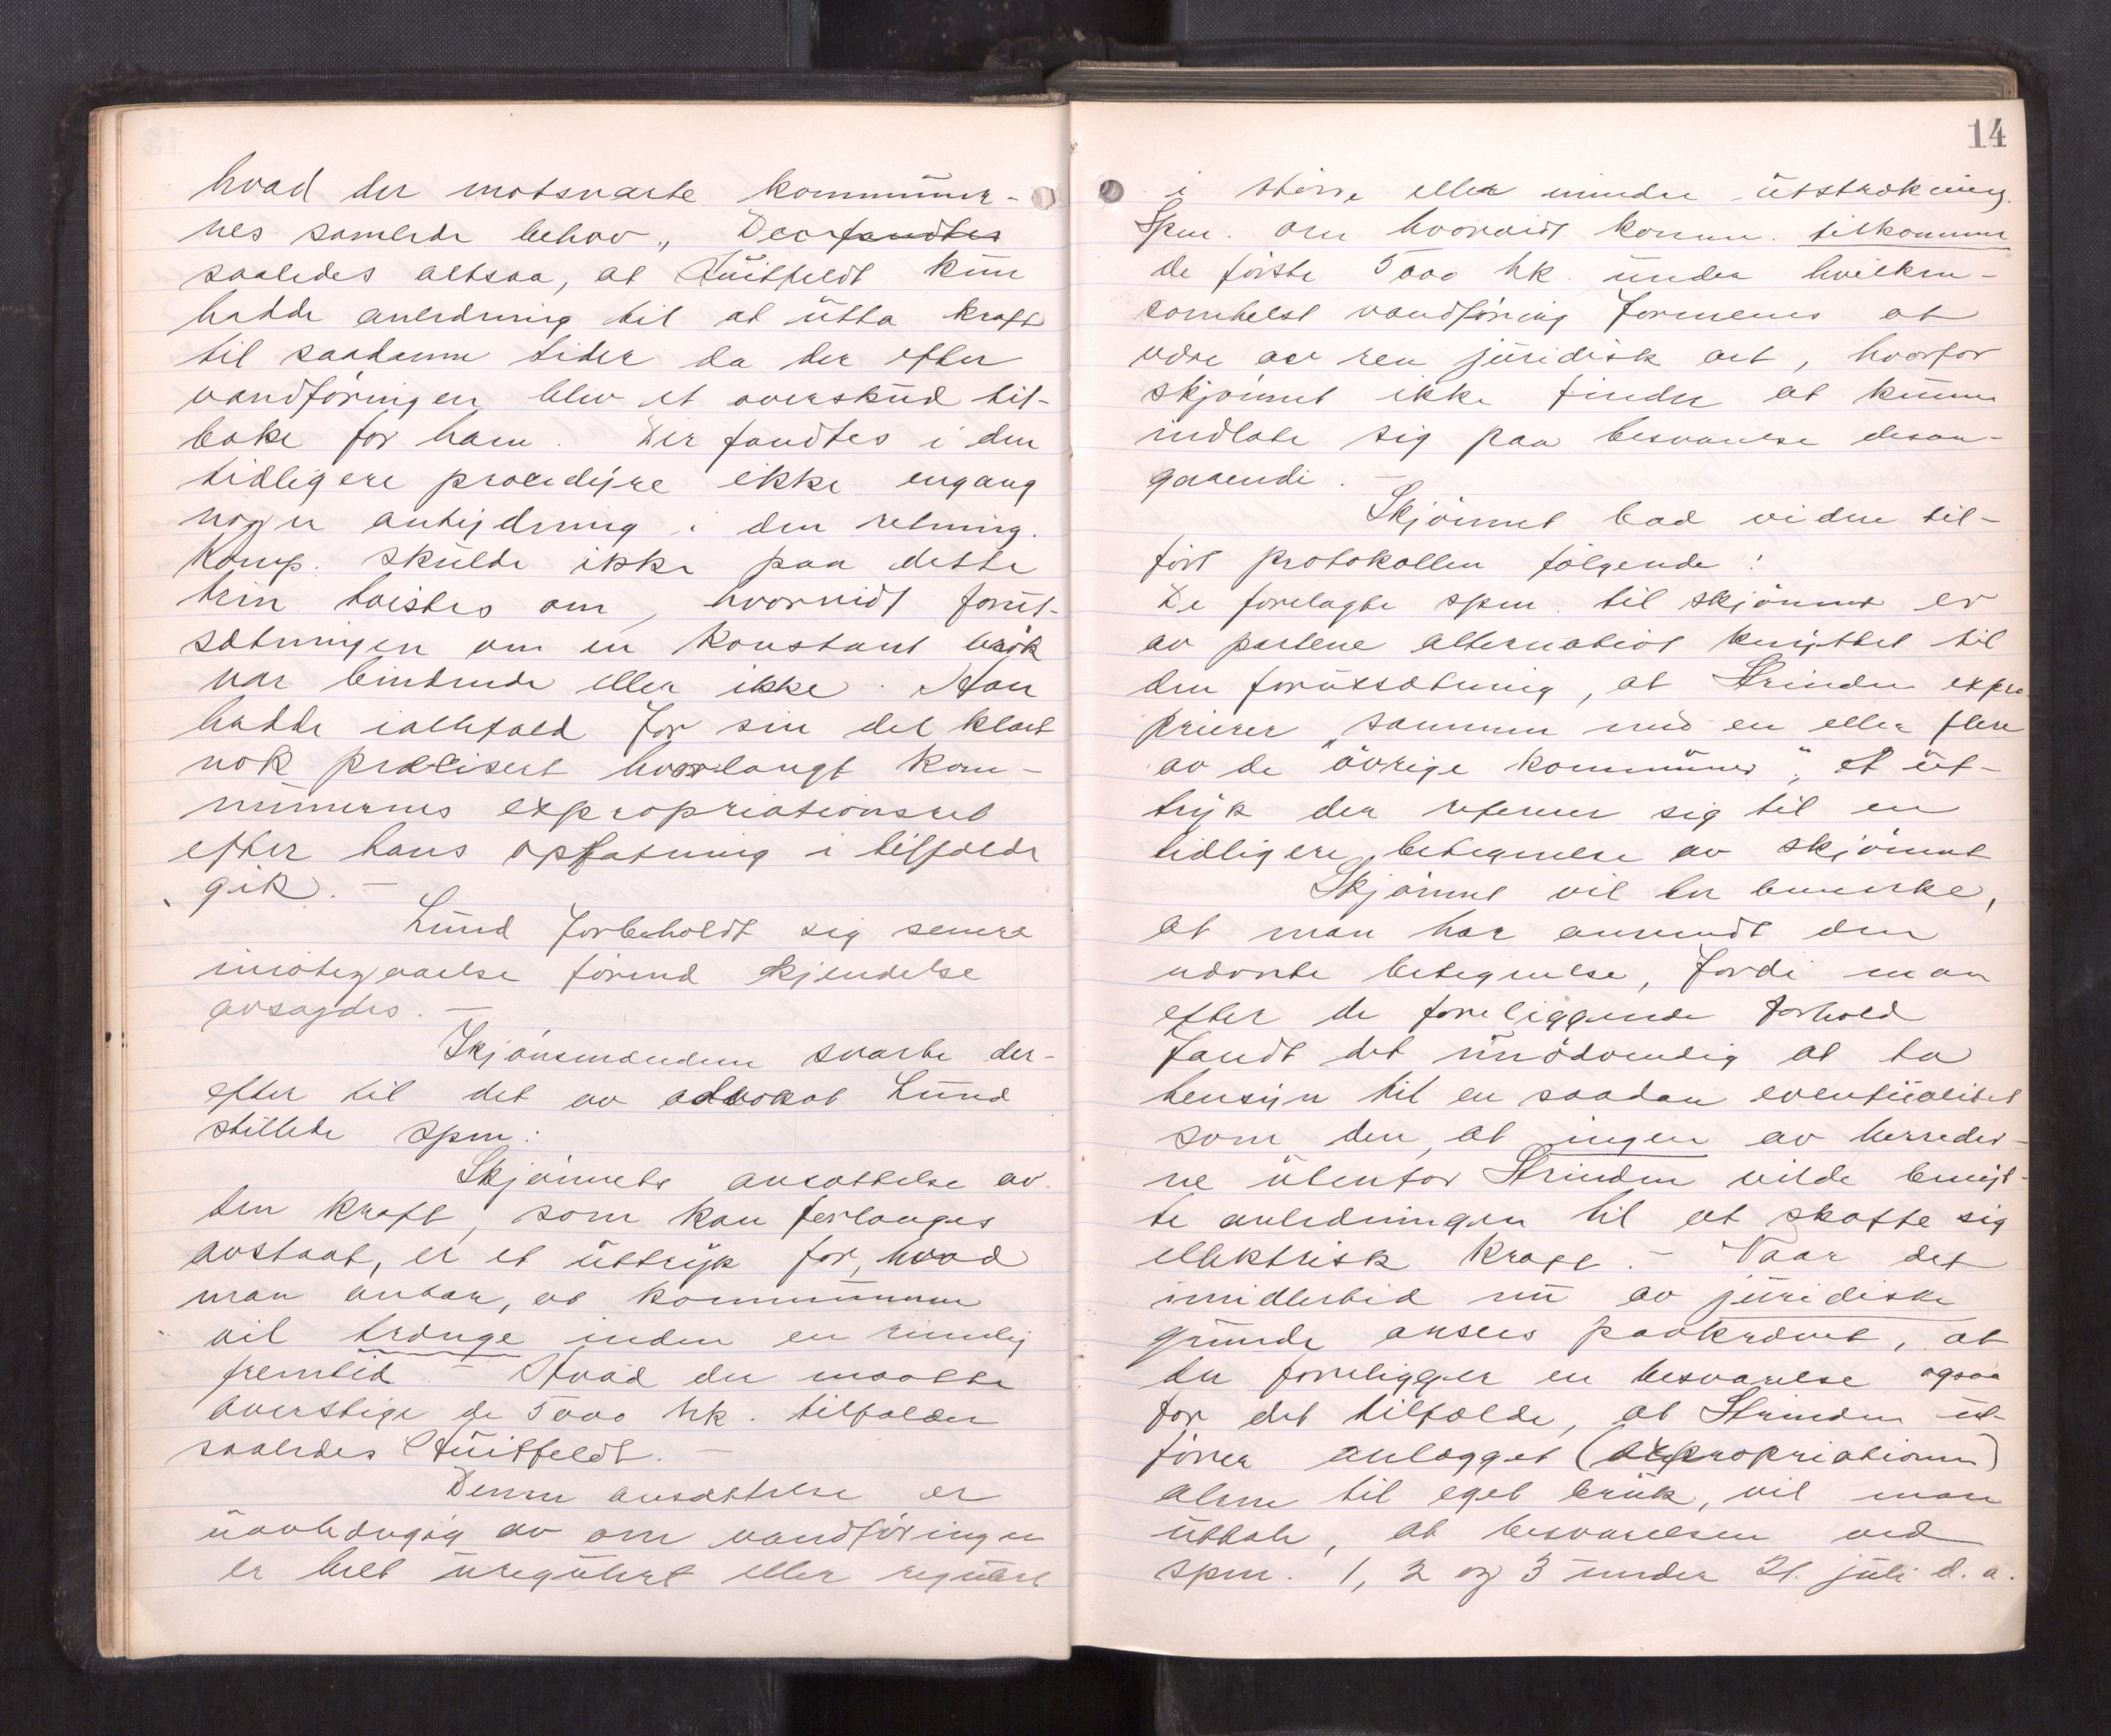 hvad der motsvarte kommuner-
nes samlede behov„ Der fandtes
saaledes altsaa, at Huitfeldt kun
hadde anledning til at utta kraft
til saadanne tider da der efter
vandföringen blev et overskud til-
bake for ham. Der fandtes i den
tidligere procedyre ikke engang
nogen antydning i den retning.
Komp. skulde ikke paa dette
trin tvistes om, hvorvidt forut-
sætningen om en konstant brök
var bindende eller ikke. Han
hadde ialtfald for sin del klart
nok præcisert hvorlangt kom-
munernes expropriationsret
efter hans opfatning i tilfælde
gik. -
Lund forbeholdt sig senere
imötegaaelse förend kjendelse
avsagdes. -
Skjönsmændene svarte der-
efter til det av advokat Lund
stillede spm:
Skjönnets ansættelse av
den kraft, som kan forlanges
avstaat, er et uttryk for, hvad
man antar, at kommunerne
vil trænge inden en rimelig
fremtid. - Hvad der maatte
överstige de 5000 hk. tilfalder
saaledes Huitfeldt. -
Denne ansættelse er
uavhængig av om vandföringen
er helt uregulert eller regulert
14
i större eller mindre utstrækning.
Spm. om hvorvidt komm. tilkommer
de förste 5000 hk. under hvilken-
somhelst vandföring formenes at
være av ren juridisk art, hvorfor
skjönnet ikke finder at kunne
indlate sig paa besvarelse desan-
gaaende. -
Skjönnet bad videre til-
fört protokollen fölgende:
De forelagte spm. til skjönnet er
av partene alternativt knyttet til
den forutsætning, at Strinden expro-
prierer „sammen med en eller flere
av de övrige kommuner", et ut-
tryk der referer sig til en
tidligere betegnelse av skjönnet
Skjönnet vil her bemerke,
at man har anvendt den
nævnte betegnelse, fordi man
efter de foreliggende forhold
fandt det unödvendig at ta
hensyn til en saadan eventualitet
som den, at ingen av herreder-
ne utenfor Strinden vilde benyt-
te anledningen til at skaffe sig
elektrisk kraft. - Naar det
imidlertid nu av juridiske
grunde ansees paakrævet, at
der foreligger en besvarelse ogsaa
for det tilfælde, at Strinden ut-
förer anlægget (expropriationen)
alene til eget bruk, vil man
uttale, at besvarelsen ved
spm. 1, 2 og 3 under 21. juli d. a.